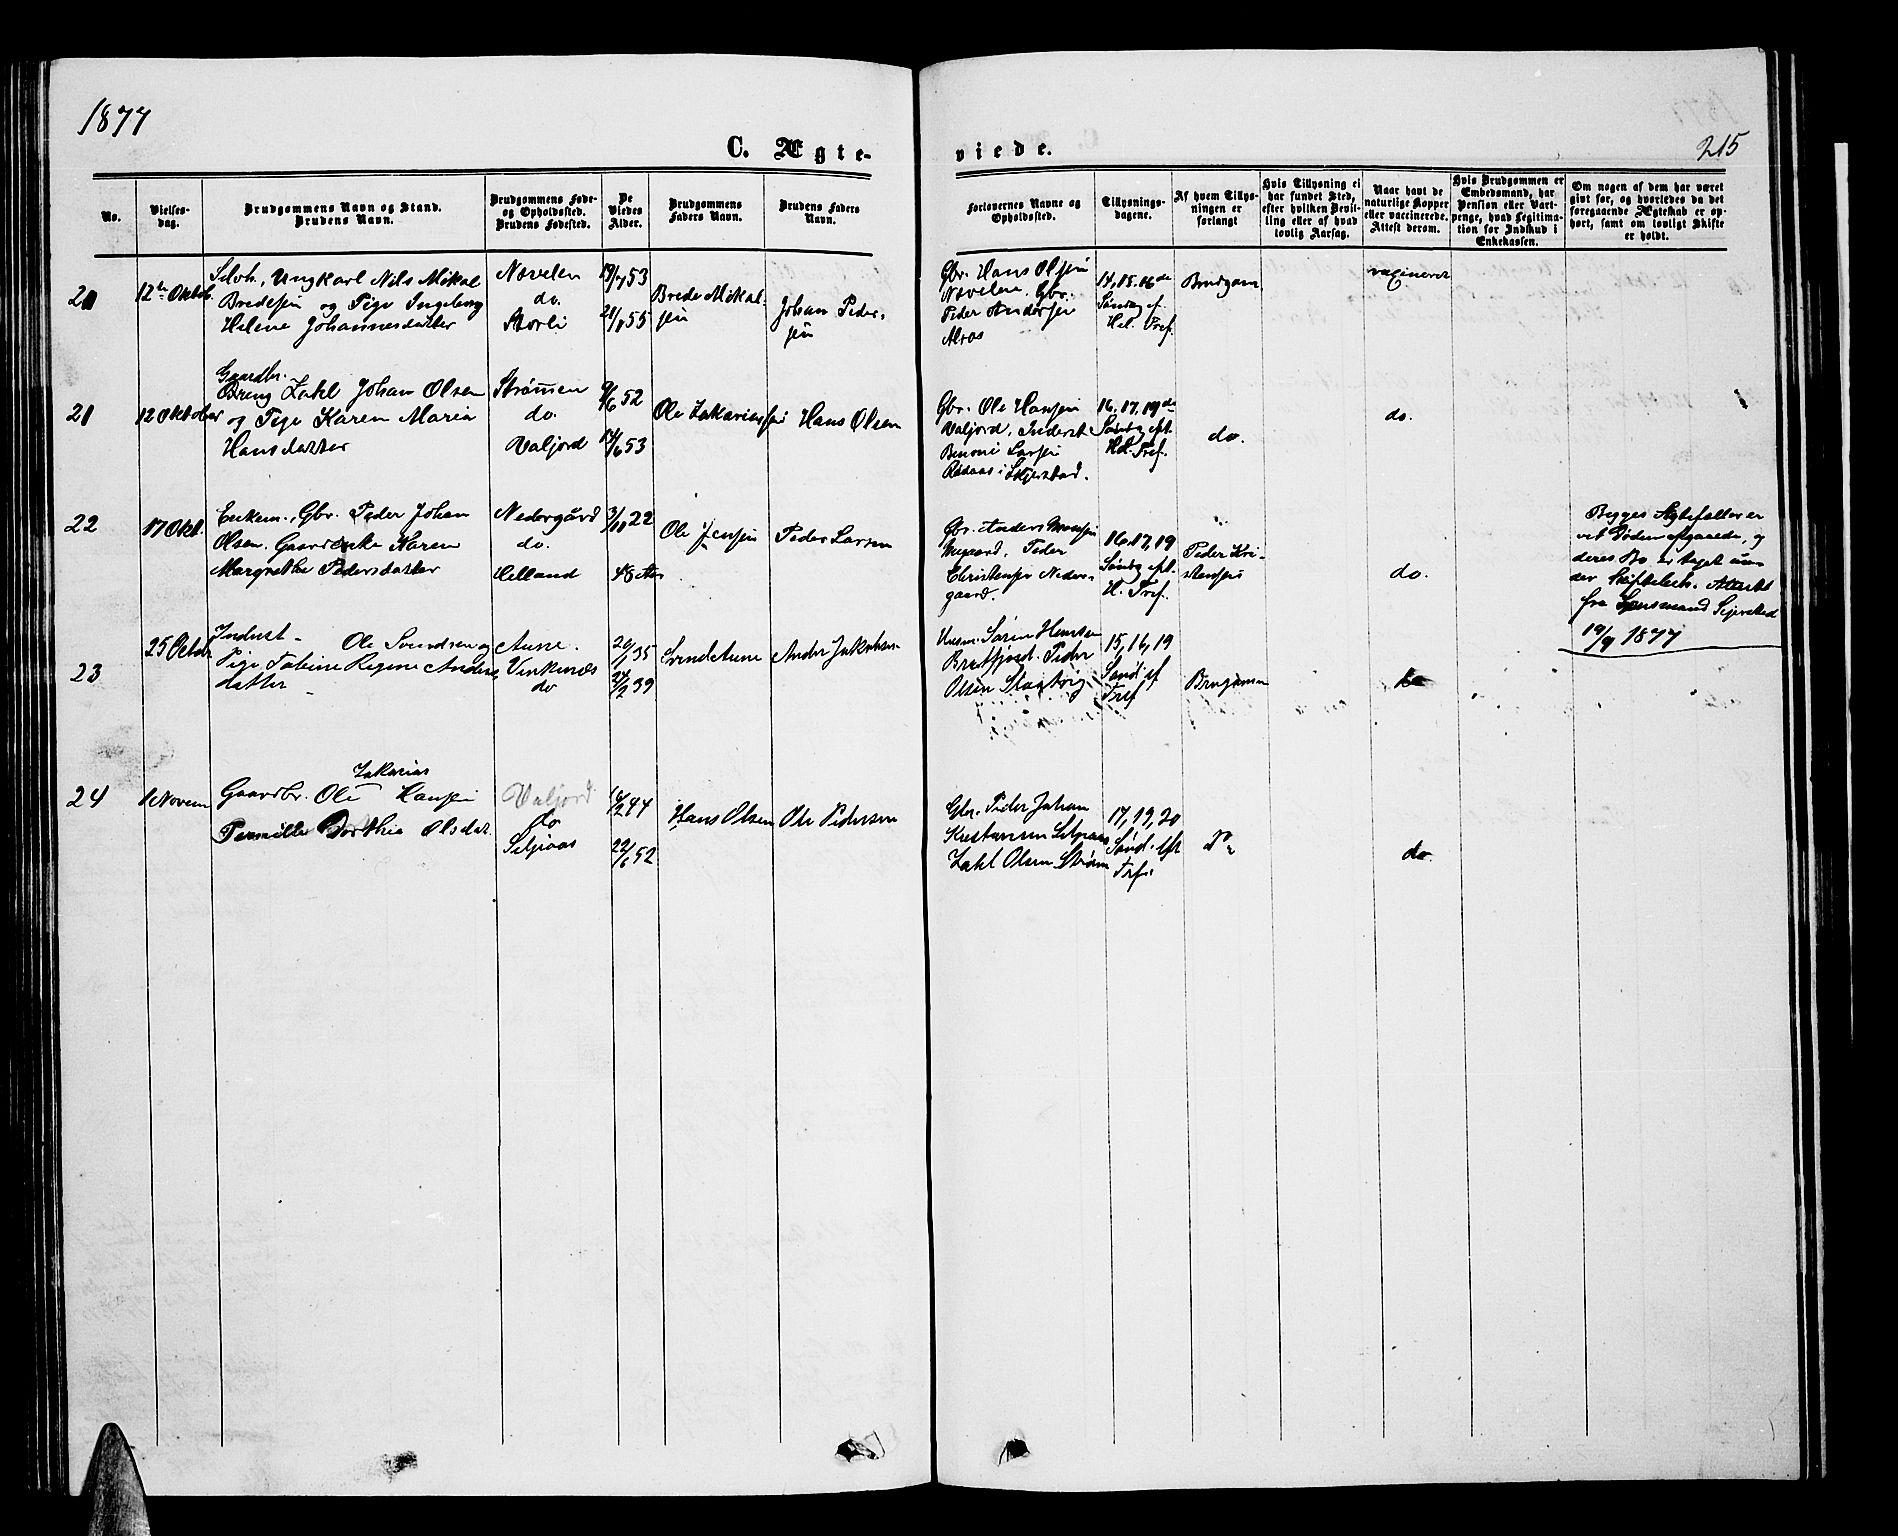 1877
C. Ægte-
No.
Vielses-
dag.
Brudgommens Navn og Stand.
Brudens Navn.
Brudgommens Føde-
og Opholdssted.
Brudens Fødested.
De
Viedes
Alder.
Brudgommens
Faders Navn.
Brudens Faders
Navn.
20
12te Oktob.
Selvh. Ungkarl Nils Mikal
Bredesen og Pige Ingeborg
Helene Johannesdatter
Nævelen
do.
Storli
19/7 53
21/8 55
Brede Mikal-
sen
Johan Peder-
sen
21
12 Oktober
Gaardbr.
Zakl Johan Olsen
og Pige Karen Maria
Hansdatter
Strømen
do.
Valjord
9/6 52
14/6 53
Ole Zakariassen
Hans Olsen
22
17 Okt.
Enkem., Gbr. Peder Johan
Olsen. Gaardenke Karen
Margrethe Pedersdatter
Nedergård
do.
Helland
3/10 22
48 Aar
Ole Jensen
Peder Larsen
23
25 Octobr
Indust -
Ole Svendsen og
Pige Tabine Regine Anders
datter
Aune.
Venkenæs
do
20/1 35
24/2 39
Svend Aune
Ander Jakobsen
24
1 Novem
Zakarias
Gaardbr. Ole Hansen
Pernille Dorthea Olsdat.
Valjord
do
Seljeaas
14/2 44
22/6 52
Hans Olsen
Ole Pedersen
viede.
215
Forlovernes Navne og
Opholdssted.
Tillysnings-
dagene.
Af hvem Tillys-
ningen er
forlangt
Hvis Tillysning ei
har fundet Sted,
efter hvilken Bevil-
ling eller af hvad
lovlig Aarsag.
Naar havt de
naturlige Kopper
eller vaccinerede.
Attest derom.
Hvis Brudgommen er
Embedsmand, har
Pension eller Vart-
penge, hvad Legitima-
tion for Indskud i
Enkekassen.
Om nogen af dem har været
gift før, og hvorledes da det
foregaaende Ægteskab er op-
hørt, samt om lovligt Skifte
er holdt.
Gbr. Hans Olsen
Nævelen. Gbr.
Peder Andersen
Alvos
14, 15, 16de
Søndag ef.
Hel. Tref.
Brudgom.
vaccineret
Gbr. Ole Hansen
Valjord, Inderst
Benoni Larsen
Rødaas i Skjerstad.
16, 17, 19de
Søndag eft.
Hel. Tref.
do.
do.
Gbr. Anders Monsen
Nygaard, Peder
Christensen Neder-
gaard.
16, 17, 19
Søndag eft.
H. Tref.
Peder Kri-
stensen
do.
Begges Ægtefæller er
ved Døden afgaaede, og
deres Bo er taget un-
der Skiftebeh. Attest
fra Lensmand Sejersted
19/9 1877
Husm. Søren Hensen
Peder
Olsen
15, 16, 19
Sønd ef
Tref
Brudgommen
do
Gbr. Peder Johan
Kristensen Seljeaas
Zakl Olsen Strømen
17, 19, 20
Sønd. eft
Tref.
Do
do.